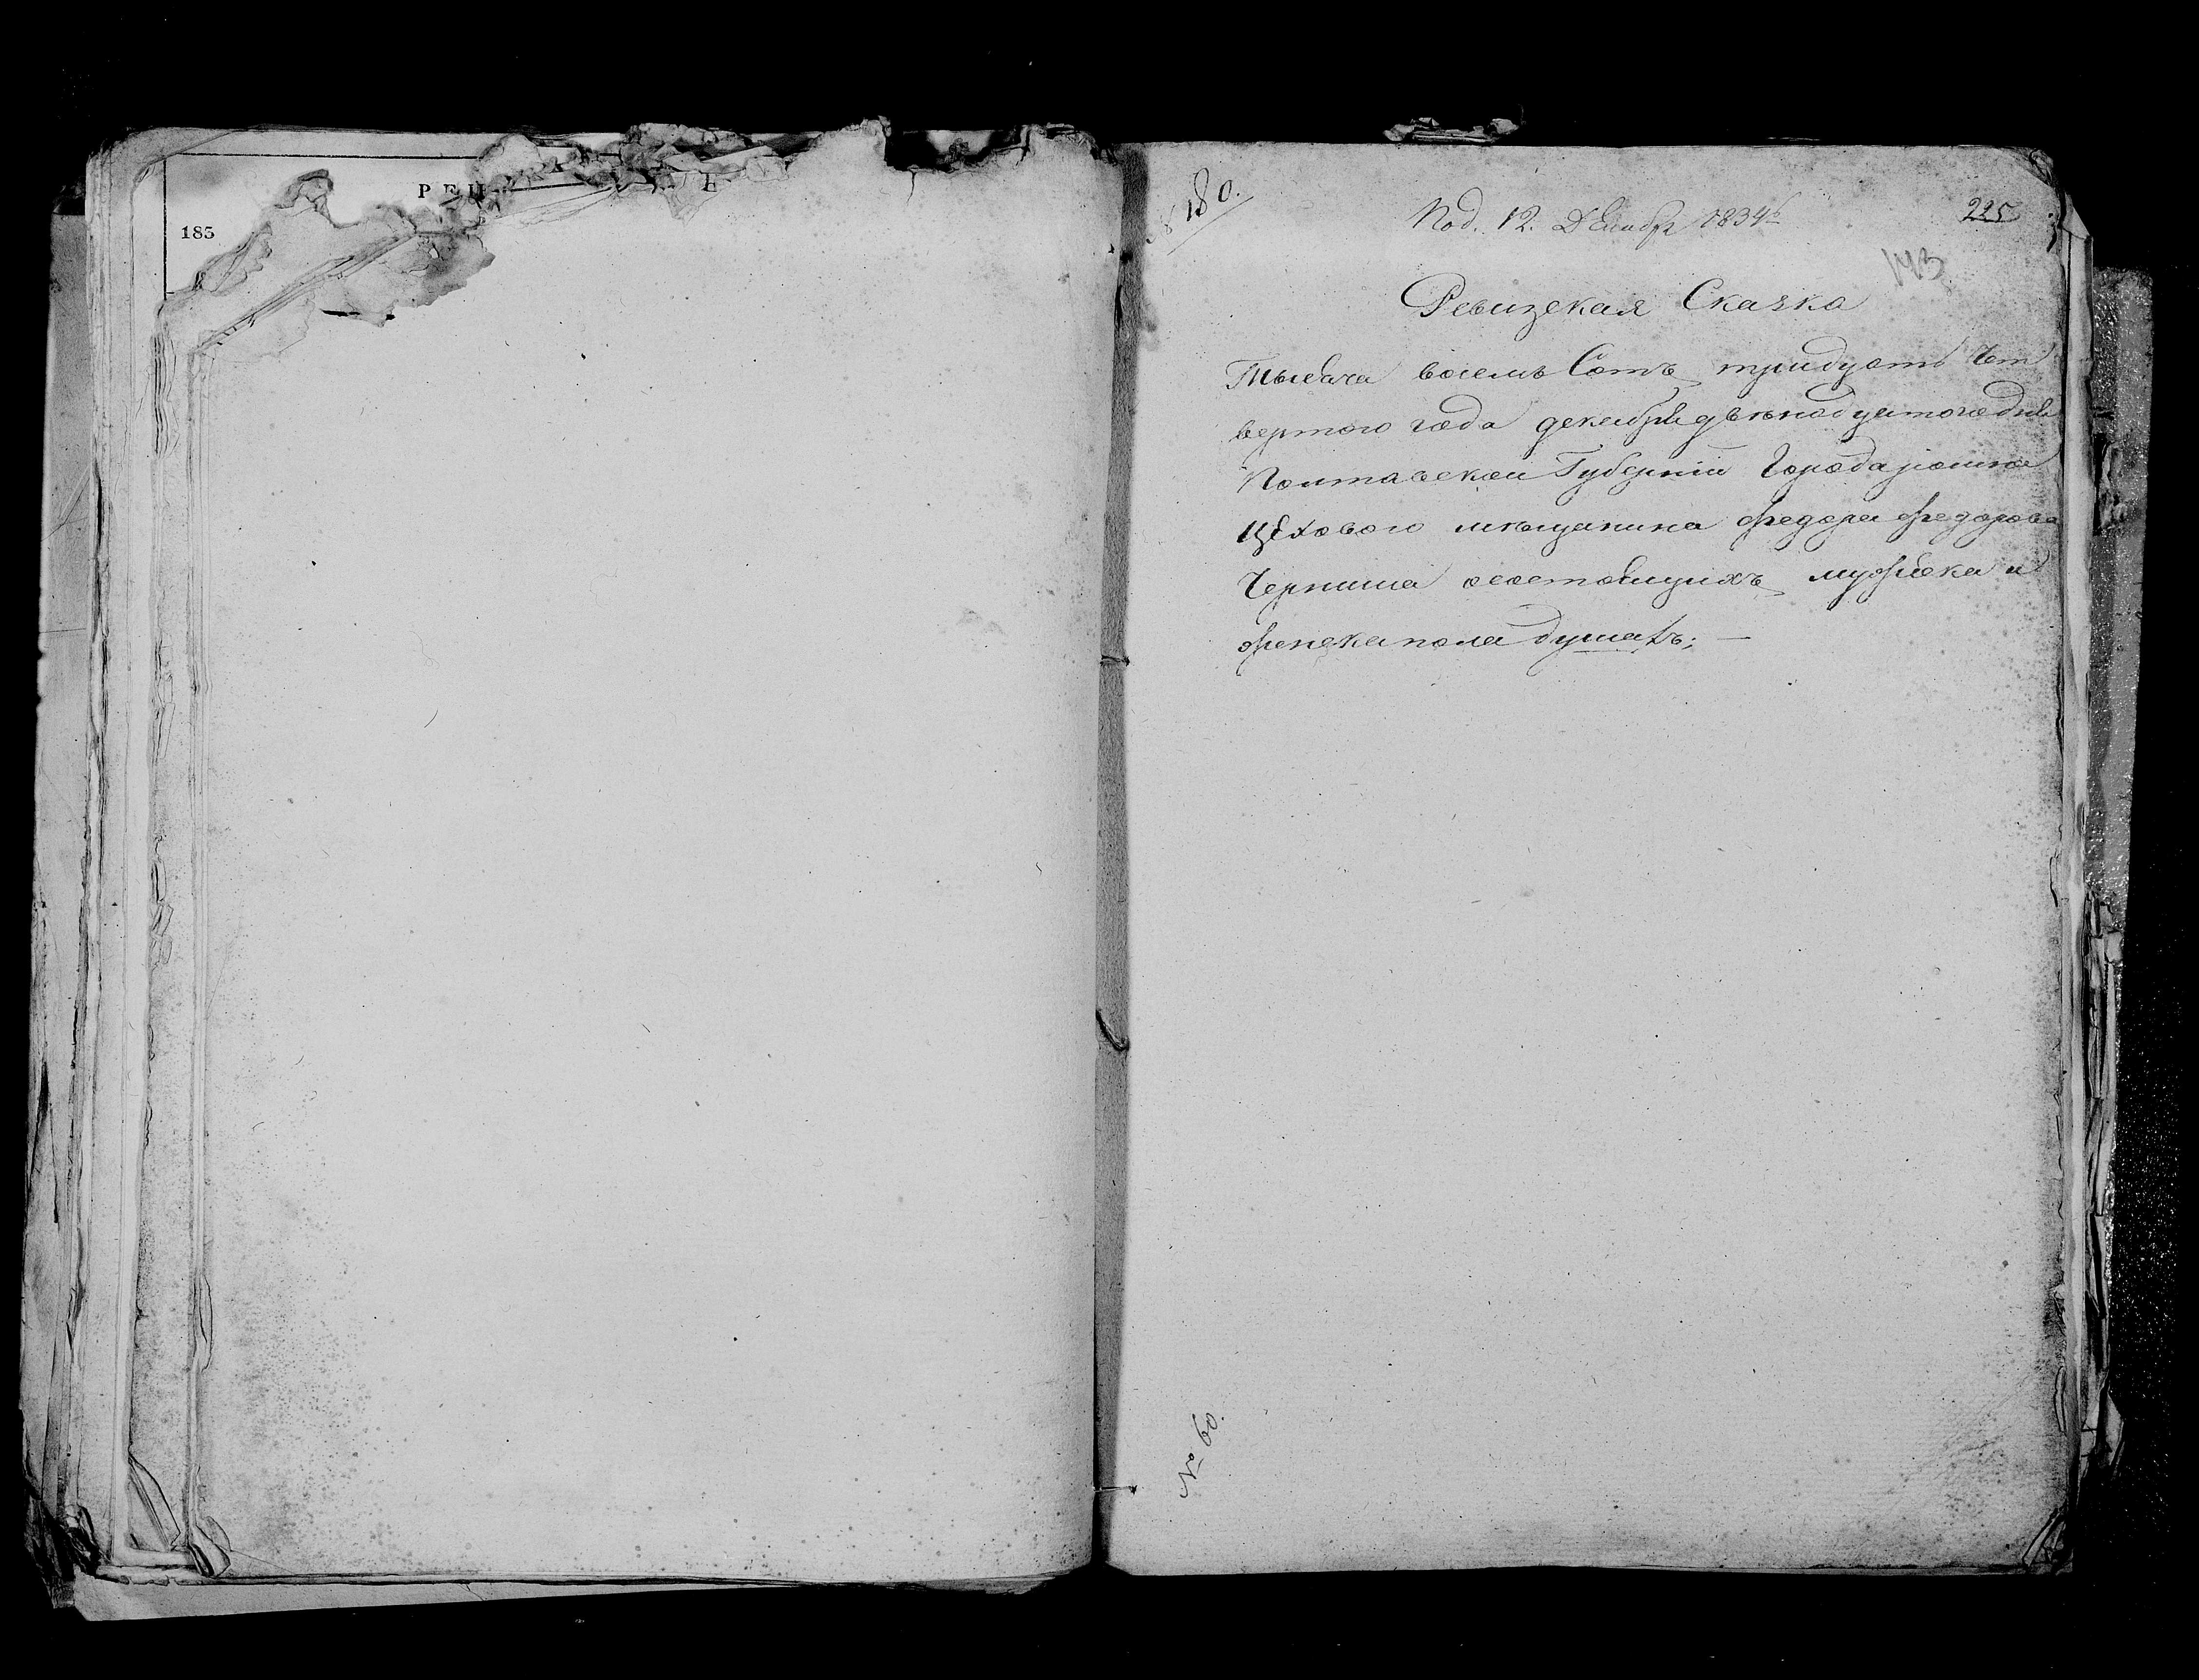 РЕВ
183
180.
Под. 12. Декабря 1834г
225
143
Ревизская Сказка
Тысяча восемь Сотъ тридцать Чет
вертого года декабря двенадцатого дня
Полтавской Губернии Города ромна
Цехового мѣщанина федора федорова
Черныша осостоящихъ мужеска и
женска пола душахъ; —
№ 60